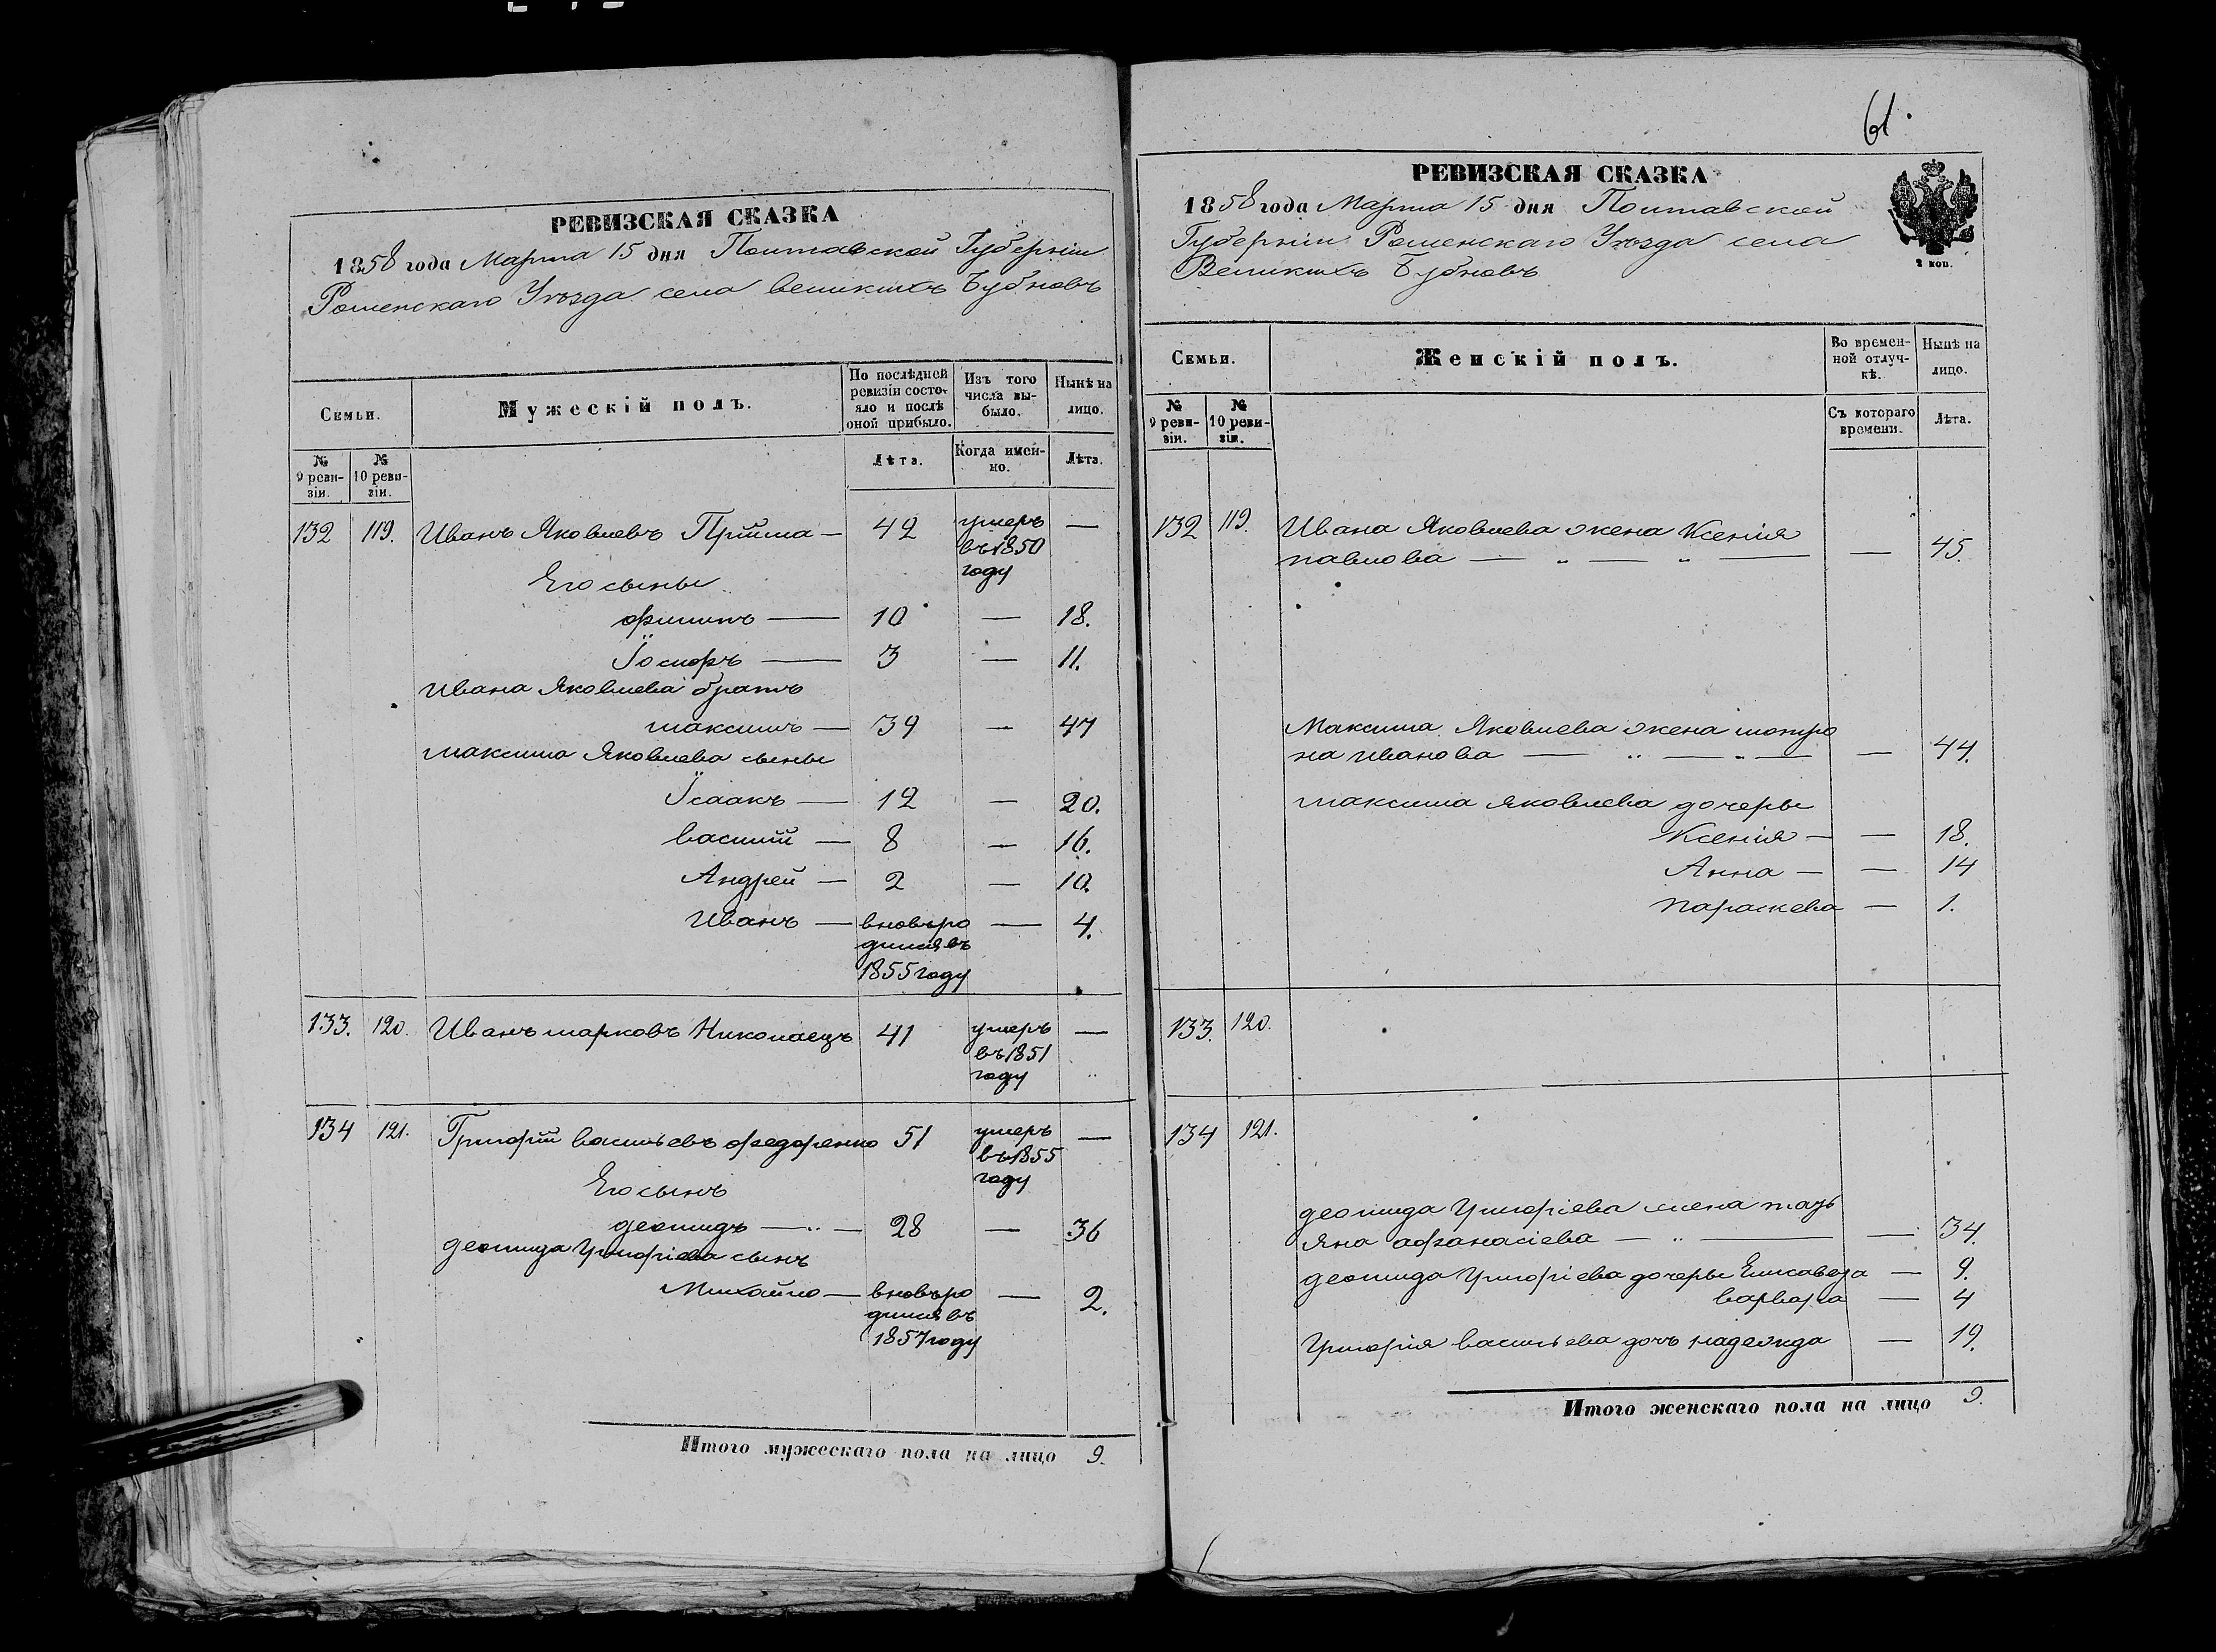 РЕВИЗСКАЯ СКАЗКА
1858 года Марта 15 дня Полтавской Губерніи
Роменскаго Уѣзда села великихъ Бубновъ
Семьи.
Мужескій полъ.
По послѣдней ревизіи состояло и послѣ оной прибыло.
Изъ того числа выбыло.
Нынѣ на лицо.
№ 9 ревизіи.
№ 10 ревизіи.
Лѣта.
Когда именно.
Лѣта.
132 119. Иванъ Яковлевъ Прійма — 42 умеръ —
въ 1850
году
Его сыны
филипъ — 10 — 18.
Іосифъ — 3 — 11.
Ивана Яковлева братъ
максимъ — 39 — 47
максима Яковлева сыны
Ісаакъ — 12 — 20.
василій — 8 — 16.
Андрей — 2 — 10.
Иванъ — вновьро — 4.
дился въ
1855 году
133. 120. Иванъ марковъ Николаецъ 41 умеръ —
въ 1851
году
134 121. Григорій васильевъ федоренко 51 умеръ —
въ 1855
году
Его сынъ
леонидъ — 28 — 36
леонида Григоріева сынъ
Михайло — вновьро — 2.
дился въ
1857 году
Итого мужескаго пола на лицо 9.
61.
РЕВИЗСКАЯ СКАЗКА
1858 года Марта 15 дня Полтавской
Губерніи Роменскаго Уѣзда села
Великихъ Бубновъ
2 коп.
Семьи.
Женскій полъ.
Во временной отлучкѣ.
Нынѣ на лицо.
№ 9 ревизіи.
№ 10 ревизіи.
Съ котораго времени.
Лѣта.
132 119. Ивана Яковлева жена Ксенія
павлова — „ — „ — — 45.
Максима Яковлева жена мотро
на иванова — „ — „ — — 44.
максима яковлева дочеры
Ксенія — — 18.
Анна — — 14
параскева — 1.
133. 120.
134 121.
леонида Григоріева жена тать
яна афанасіева — „ — — 34.
леонида Григоріева дочеры Елисавета — 9.
варвара — 4
Григорія васильева дочь надежда — 19.
Итого женскаго пола на лицо 9.